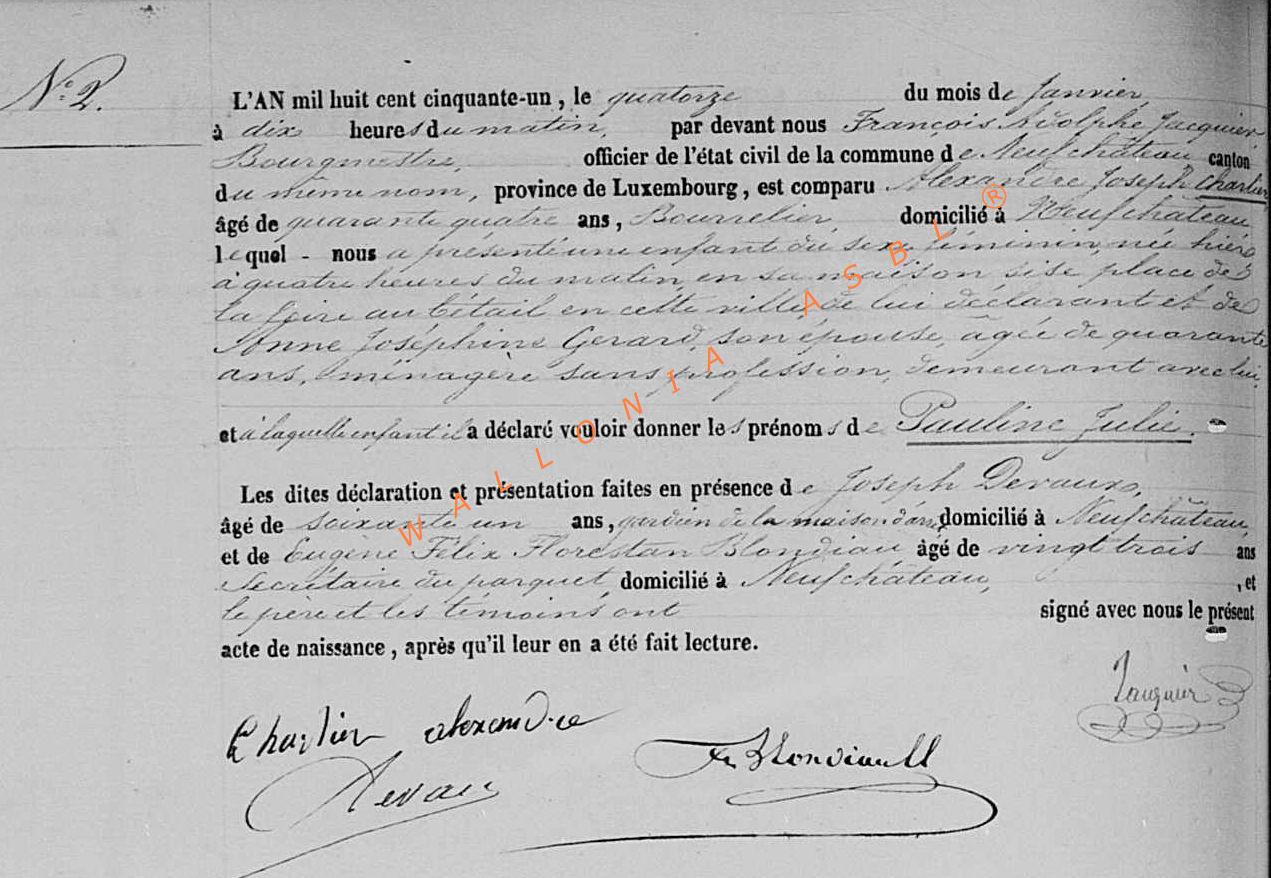 N.° 2.
L'AN mil huit cent cinquante-un, le quatorze du mois de Janvier
à dix heures du matin, par devant nous François Adolphe Jacquier
Bourgmestre, officier de l'état civil de la commune de Neufchâteau canton
du même nom, province de Luxembourg, est comparu Alexandre Joseph Charlier
âgé de quarante quatre ans, Bourrelier, domicilié à Neufchâteau,
lequel - nous a présenté une enfant du sexe féminin, née hier
à quatre heures du matin, en sa maison sise place de
la foire au bétail en cette ville, de lui déclarant et de
Anne Joséphine Gerard, son épouse, âgée de quarante
ans, ménagère sans profession, demeurant avec lui,
et à laquelle enfant il a déclaré vouloir donner les prénoms de Pauline Julie.
Les dites déclaration et présentation faites en présence de Joseph Devaux,
âgé de soixante un ans, gardien de la maison d'arrêt domicilié à Neufchâteau,
et de Eugène Félix Florestan Blondiau, âgé de vingt trois ans
Secrétaire du parquet, domicilié à Neufchâteau, , et
le père et les témoins ont signé avec nous le présent
acte de naissance, après qu'il leur en a été fait lecture.
Jacquier
Charlier alexandre
Devau
WALLONIA ASBL ®